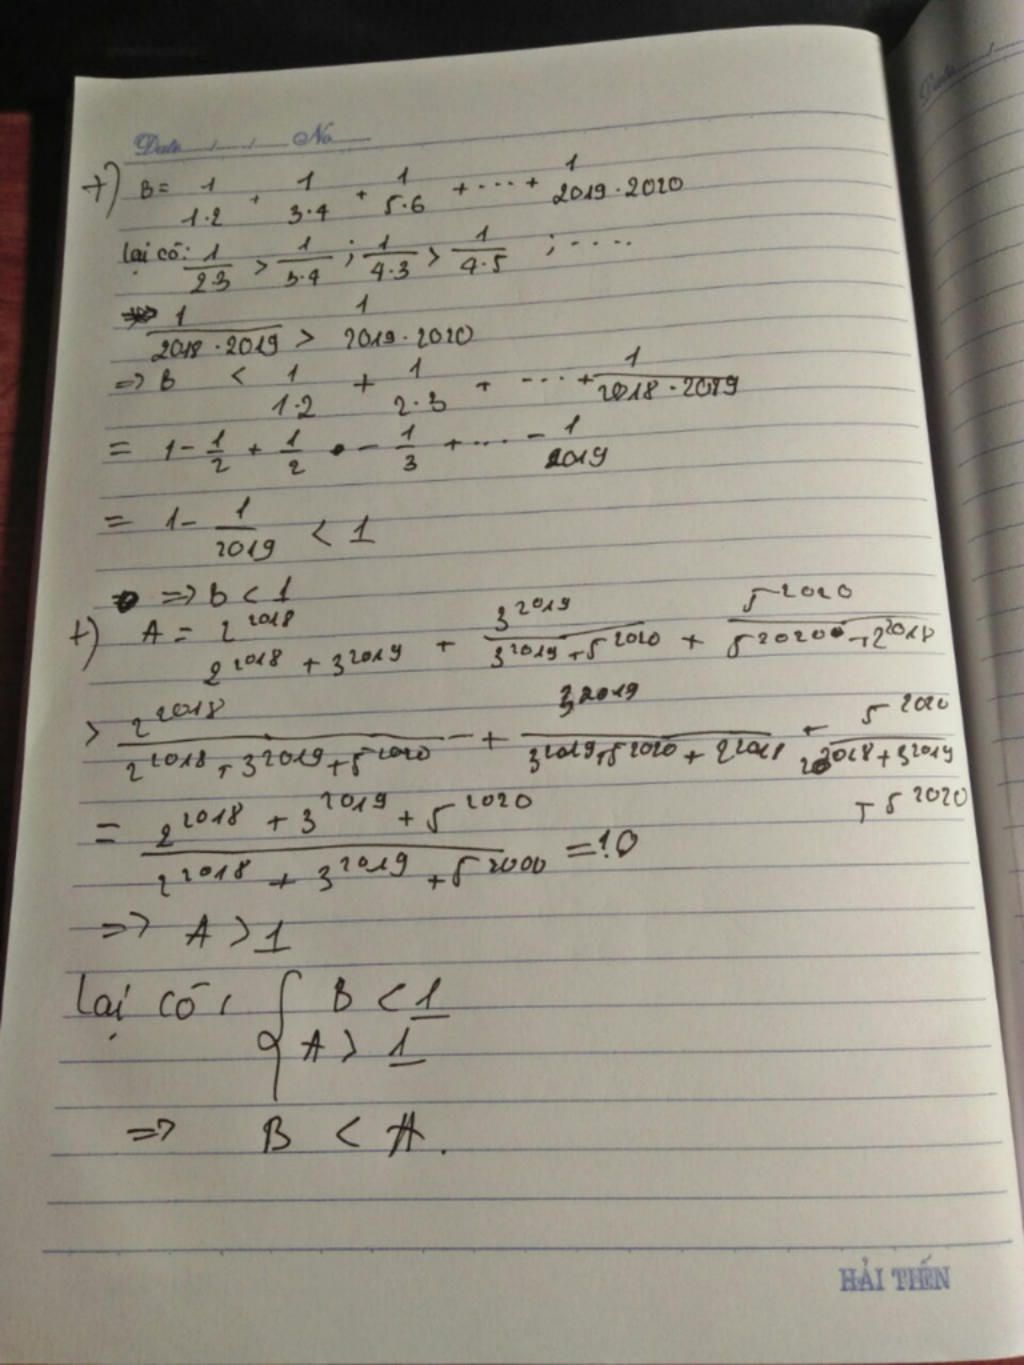 Date / / No
+) B = 1/1·2 + 1/3·4 + 1/5·6 + ... + 1/2019·2020
lại có: 1/2·3 > 1/3·4 ; 1/4·3 > 1/4·5 ; ....
1/2018·2019 > 1/2019·2020
=> B < 1/1·2 + 1/2·3 + ... + 1/2018·2019
= 1 - 1/2 + 1/2 - 1/3 + ... - 1/2019
= 1 - 1/2019 < 1
=> B < 1
+) A = 2^2018/2^2018 + 3^2019 + 3^2019/3^2019 + 5^2020 + 5^2020/5^2020 + 2^2018
> 2^2018/2^2018 + 3^2019 + 5^2020 + 3^2019/3^2019 + 5^2020 + 2^2018 + 5^2020/2^2018 + 3^2019 + 5^2020
= 2^2018 + 3^2019 + 5^2020/2^2018 + 3^2019 + 5^2000 =
=> A > 1
Lại có: { B < 1
A > 1
=> B < A.
HẢI TIẾN